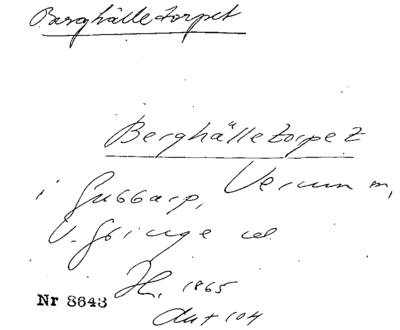 Berghälletorpet
Berghälletorpet
i Gussarp, Verum sn,
V. Göinge hd
Hr. 1865
Nr 8643
dat 104